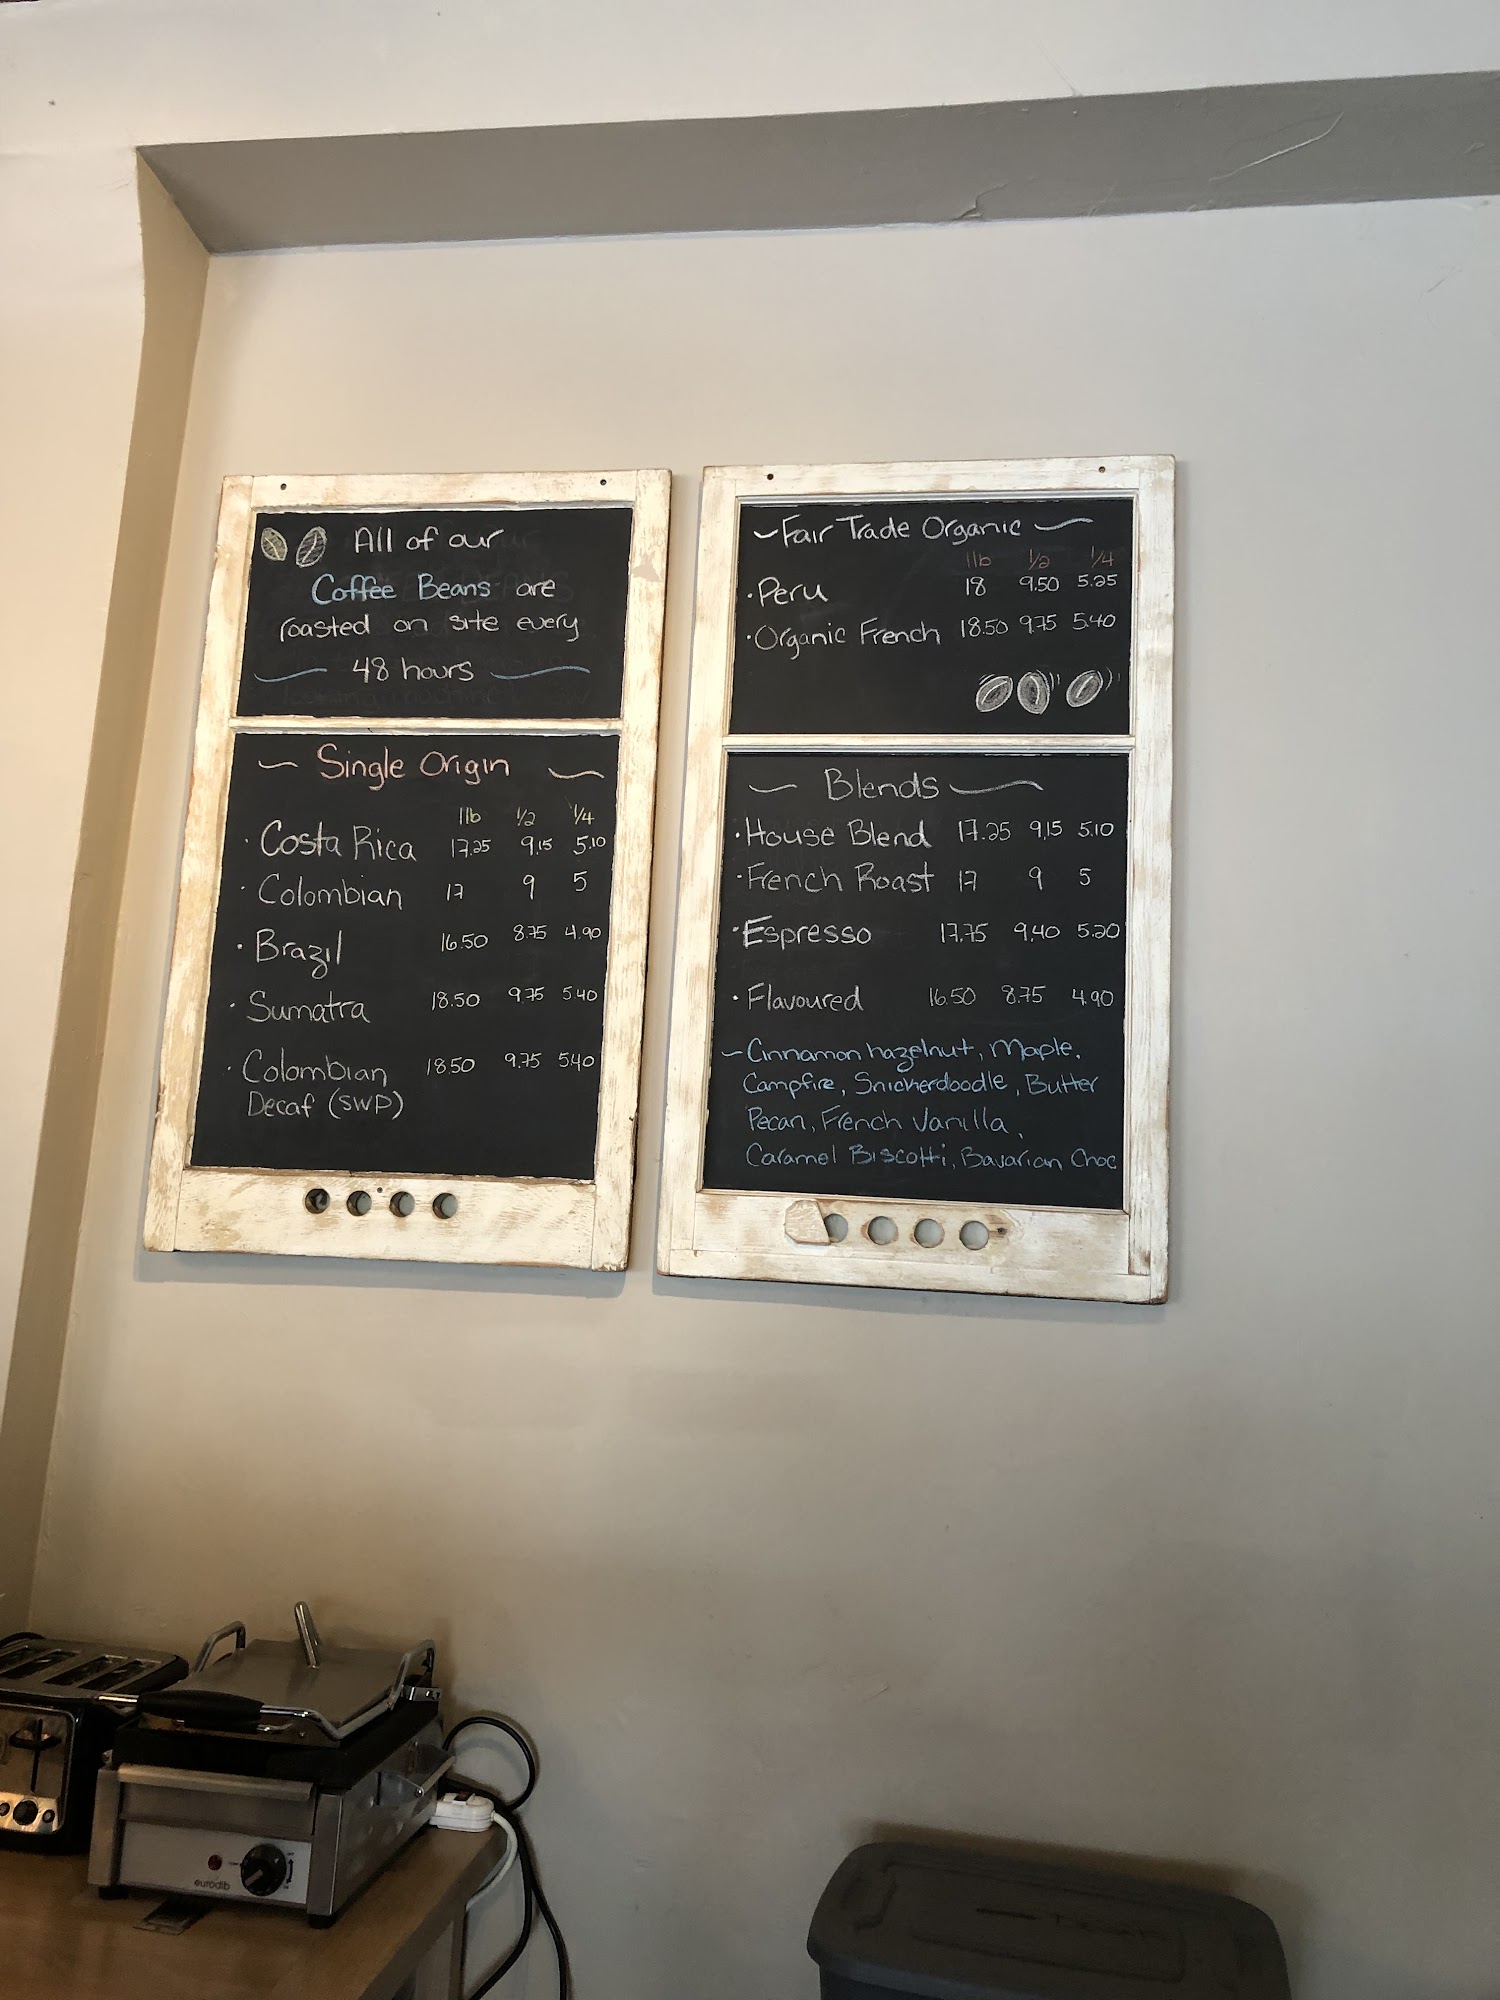 All of our
Coffee Beans are
roasted on site every
48 hours
Single Origin
1lb 1/2 1/4
· Costa Rica 17.25 9.15 5.10
· Colombian 17 9 5
· Brazil 16.50 8.75 4.90
· Sumatra 18.50 9.75 5.40
· Colombian 18.50 9.75 5.40
Decaf (SWP)
Fair Trade Organic
1lb 1/2 1/4
· Peru 18 9.50 5.25
· Organic French 18.50 9.75 5.40
Blends
· House Blend 17.25 9.15 5.10
· French Roast 17 9 5
· Espresso 17.75 9.40 5.20
· Flavoured 16.50 8.75 4.90
- Cinnamon hazelnut, Maple,
Campfire, Snickerdoodle, Butter
Pecan, French Vanilla,
Caramel Biscotti, Bavarian Choc
eurodib